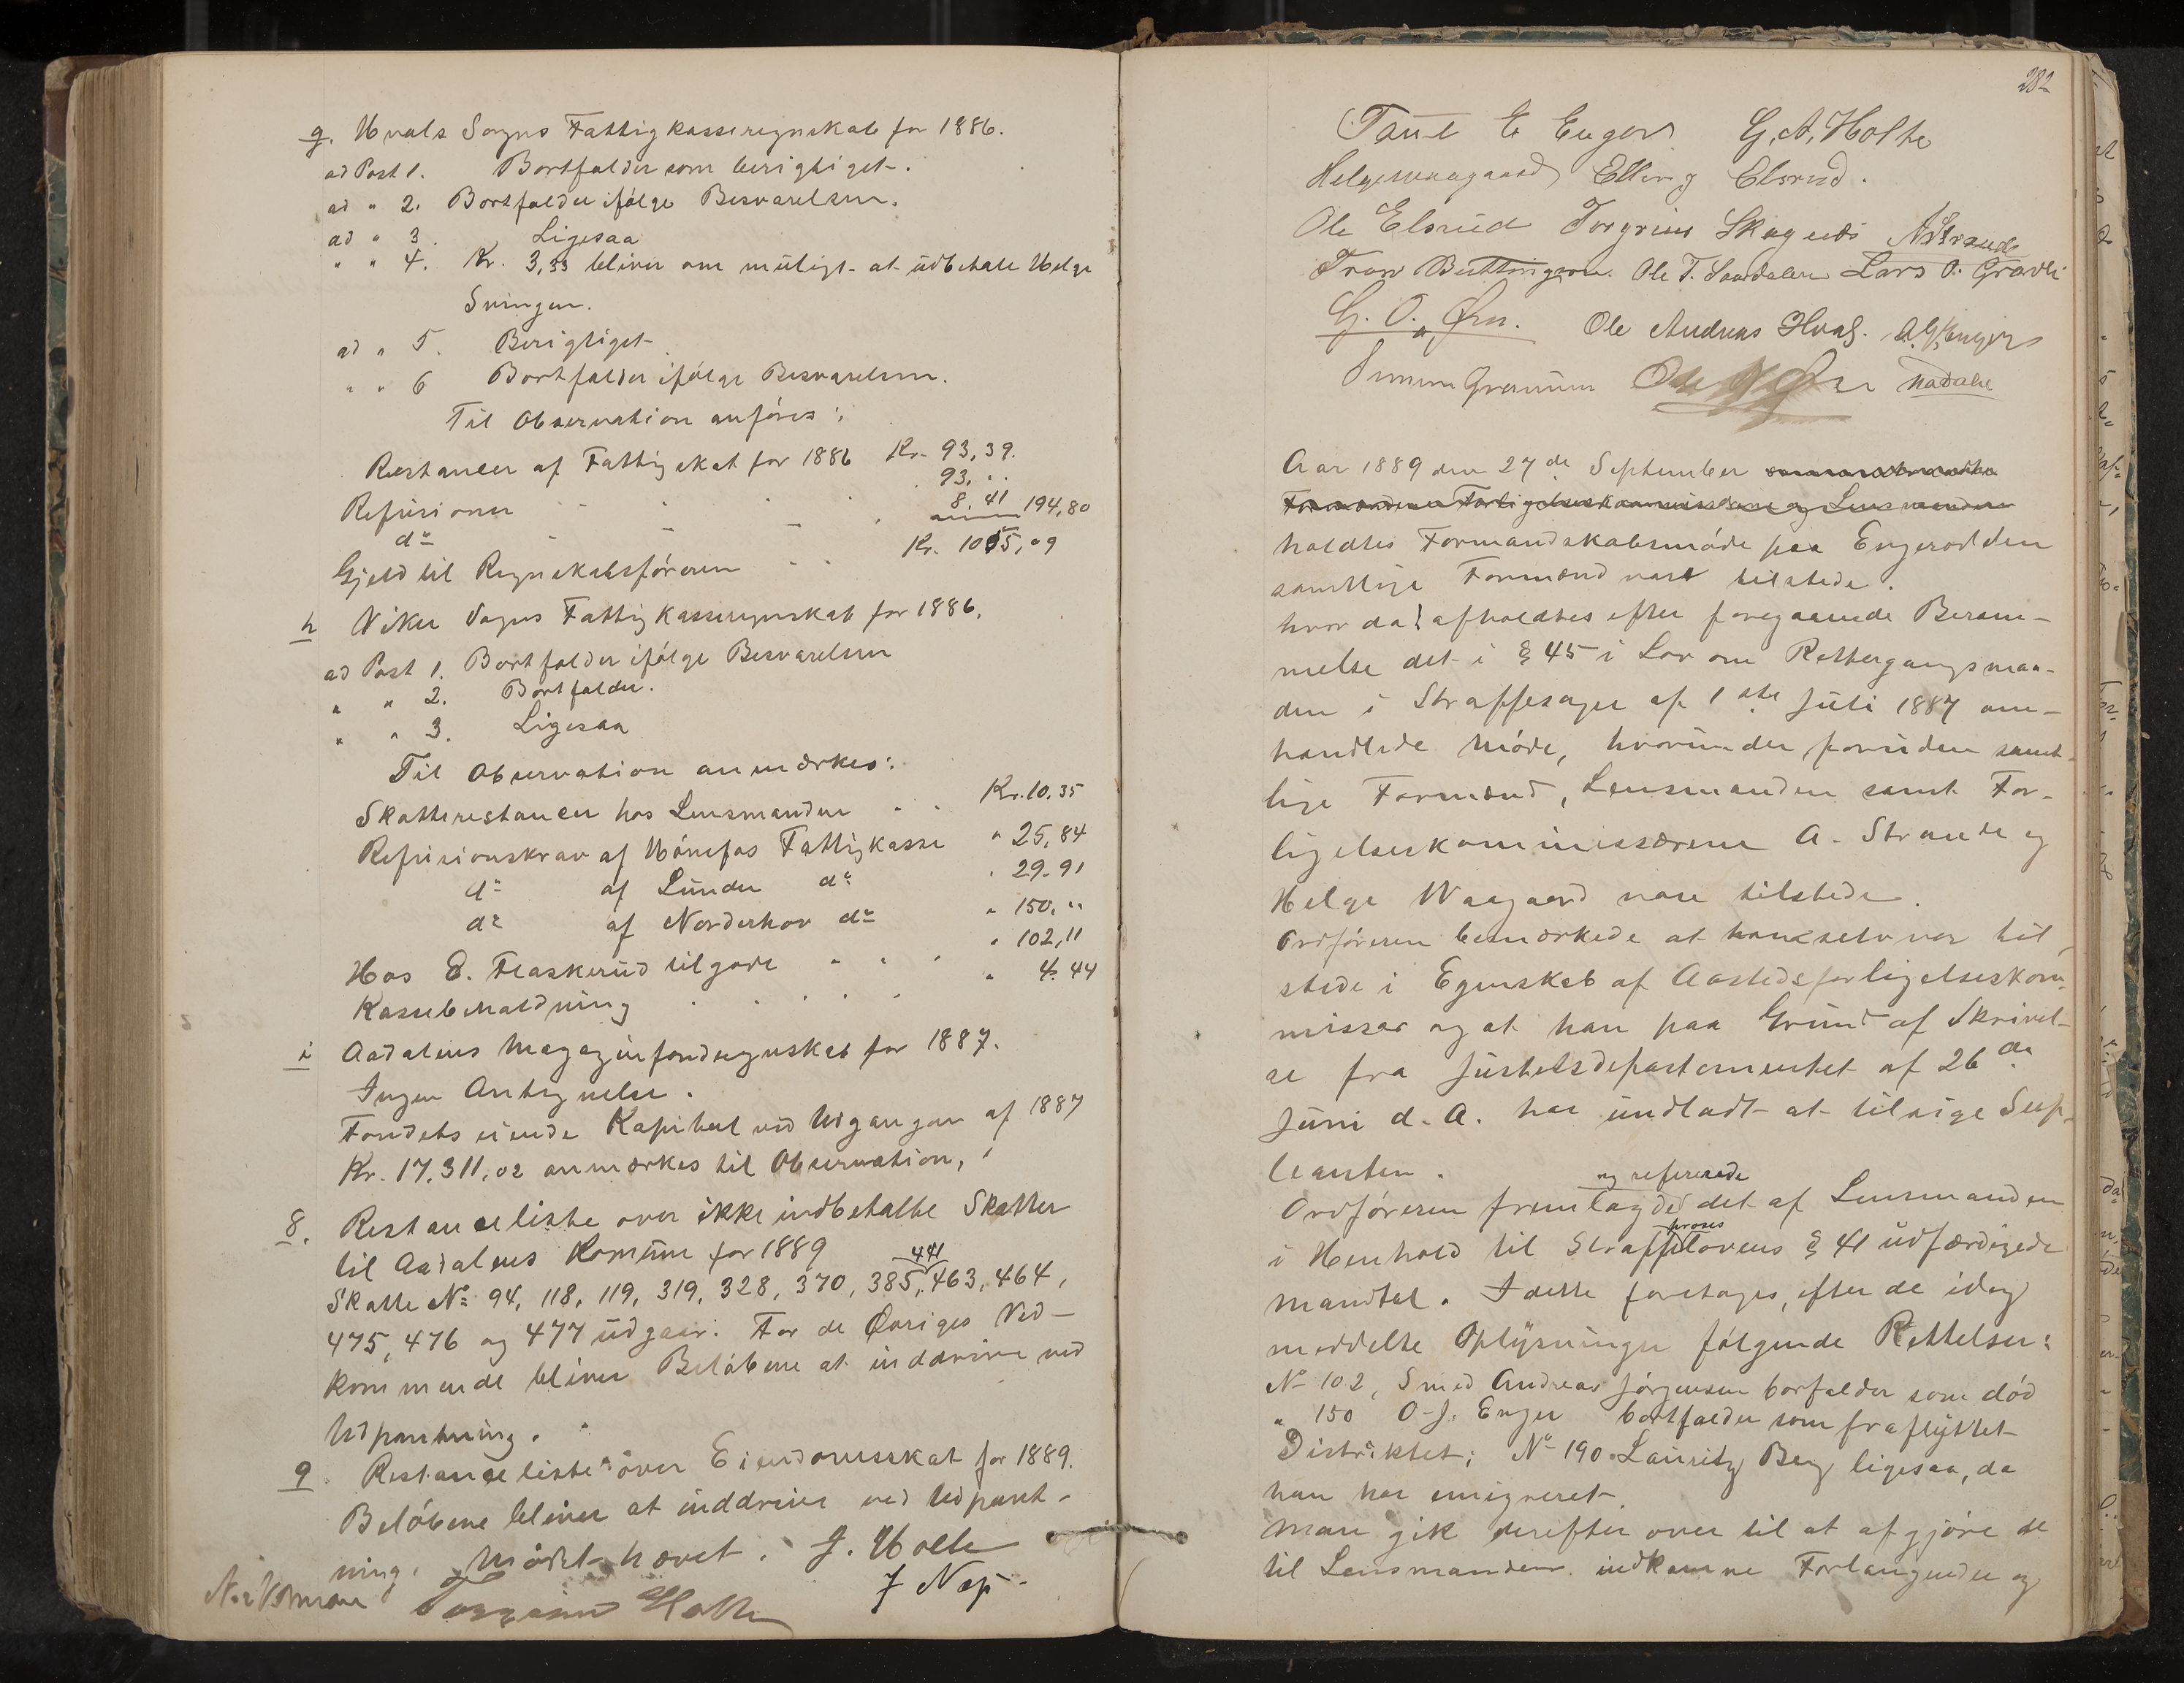 g. Hvals Sogns Fattigkasseregnskab for 1886.
ad Post 1. Bortfalder som berigtiget.
ad " 2. Bortfalder ifølge Besvarelsen.
ad " 3. Ligesaa
" " 4. Kr. 3,33 bliver om muligt at udbetale Helge
Svingen.
ad " 5. Berigtiget
" " 6 Bortfalder ifølge Besvarelsen.
Til Observation anføres:
Restancer af Fattigskat for 1886 Kr. 93,39.
Refusioner 93, "
do 8,41 194,80
Gjeld til Regnskabsføreren Kr. 1055,09
h Viker Sogns Fattigkasseregnskab for 1886.
ad Post 1. Bortfalder ifølge Besvarelsen
" " 2. Bortfalder.
" " 3. Ligesaa
Til Observation anmærkes:
Skatterestancer hos Lensmanden Kr. 10.35
Refusionskrav af Hønefos Fattigkasse " 25,84
do af Lunder do " 29.91
do af Norderhov do " 150, "
Hos E. Flaskerud tilgode " 102,11
Kassebeholdning " 4.44
i Aadalens Magazinfondregnskab for 1887.
Ingen Antegnelse.
Fondets eiende Kapital ved Udgangen af 1887
Kr. 17.311,02 anmærkes til Observation,
8. Restanceliste over ikke indbetalte Skatter
til Aadalens Komune for 1889
441
Skatte No 94, 118, 119, 319, 328, 370, 385, 463, 464,
475, 476 og 477 udgaar. For de Øvriges Ved-
kommende bliver Beløbene at inddrive ved
Udpantning.
9. Restanceliste over Eiendomsskat for 1889.
Beløbene bliver at inddrive ved Udpant-
ning. Mødet hævet. J. Holte
J Næs
Torgrim Holte
282
E Enger G. A. Holte
Elling Elsrud.
Ole Elsrud Torgrim Skagnæs A Strande
Tron Buttingsrud. Ole T. Lars O. Gravli
G. O. Øen. Ole Andreas Hval.
Aar 1889 den 27de September
Formændene Forligelseskommissærene og Lensmanden
holdtes Formandskabsmøde paa Engerodden
samtlige Formænd vare tilstede.
hvor da afholdtes efter foregaaende Beram-
melse det i § 45 i Lov om Rettergangsmaa-
den i Straffesager af 1ste Juli 1887 om-
handlede Møde, hvorunder foruden samt-
lige Formænd, Lensmanden samt For-
ligelseskommissærene A. Strande og
Helge Waagaard vare tilstede.
Ordføreren bemærkede at han selv var til-
stede i Egenskab af Aastedsforligelseskom-
missær og at han paa Grund af Skrivel-
se fra Justitsdepartementet af 26de
Juni d. A. har undladt at tilsige Sup-
leanten.
og refererede
Ordføreren fremlagde det af Lensmanden
proses
i Henhold til Straffelovens § 41 udfærdigede
Mandtal. I dette foretages, efter de idag
meddelte Oplysninger følgende Rettelser:
No 102, Smed Andreas Jørgensen borfalder som død
" 150 O. J. Enger bortfalder som fraflyttet
Distriktet; No 190 Lauritz Berg ligesaa, da
han har emigreret.
Man gik derefter over til at afgjøre de
til Lensmanden indkomne Forlangender og